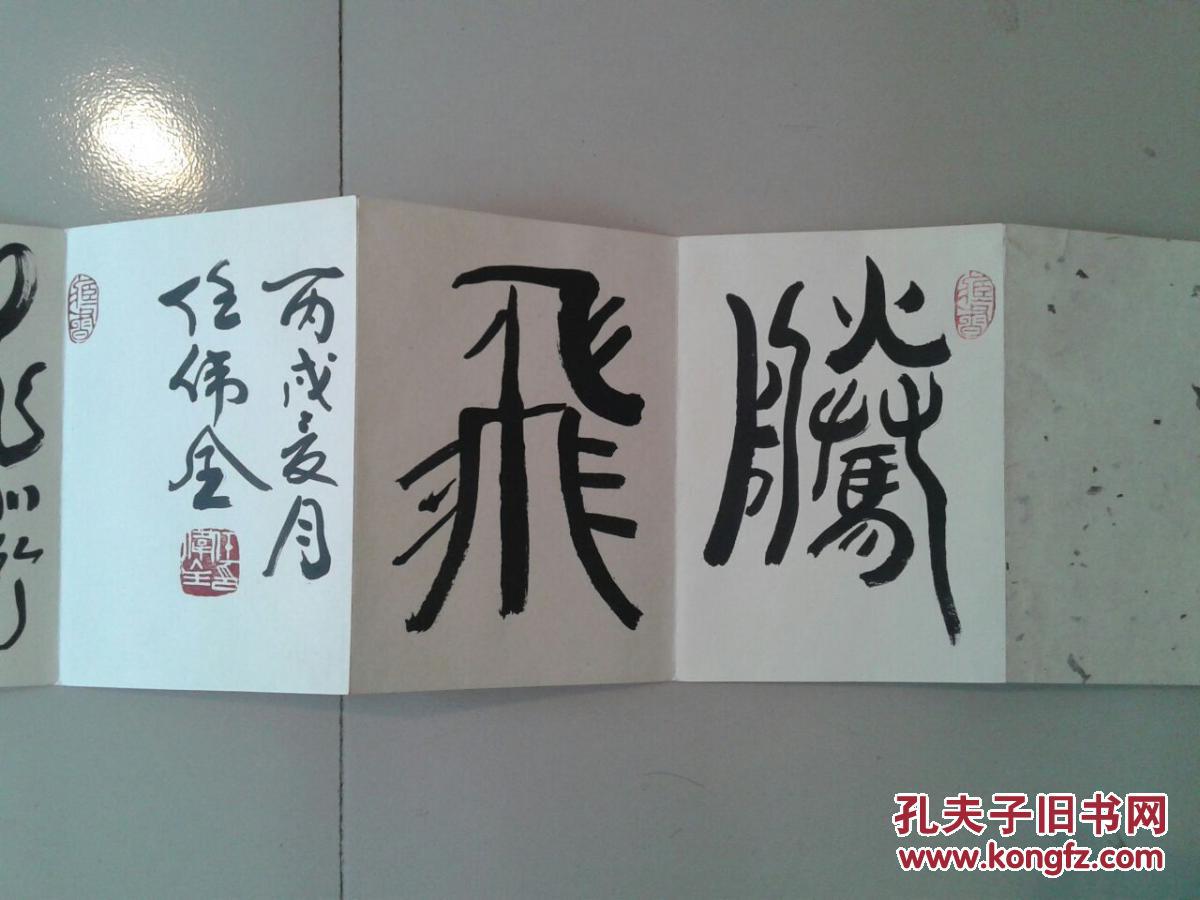 騰
飛
丙戌夏月
任伟全
任偉全印
孔夫子旧书网
www.kongfz.com